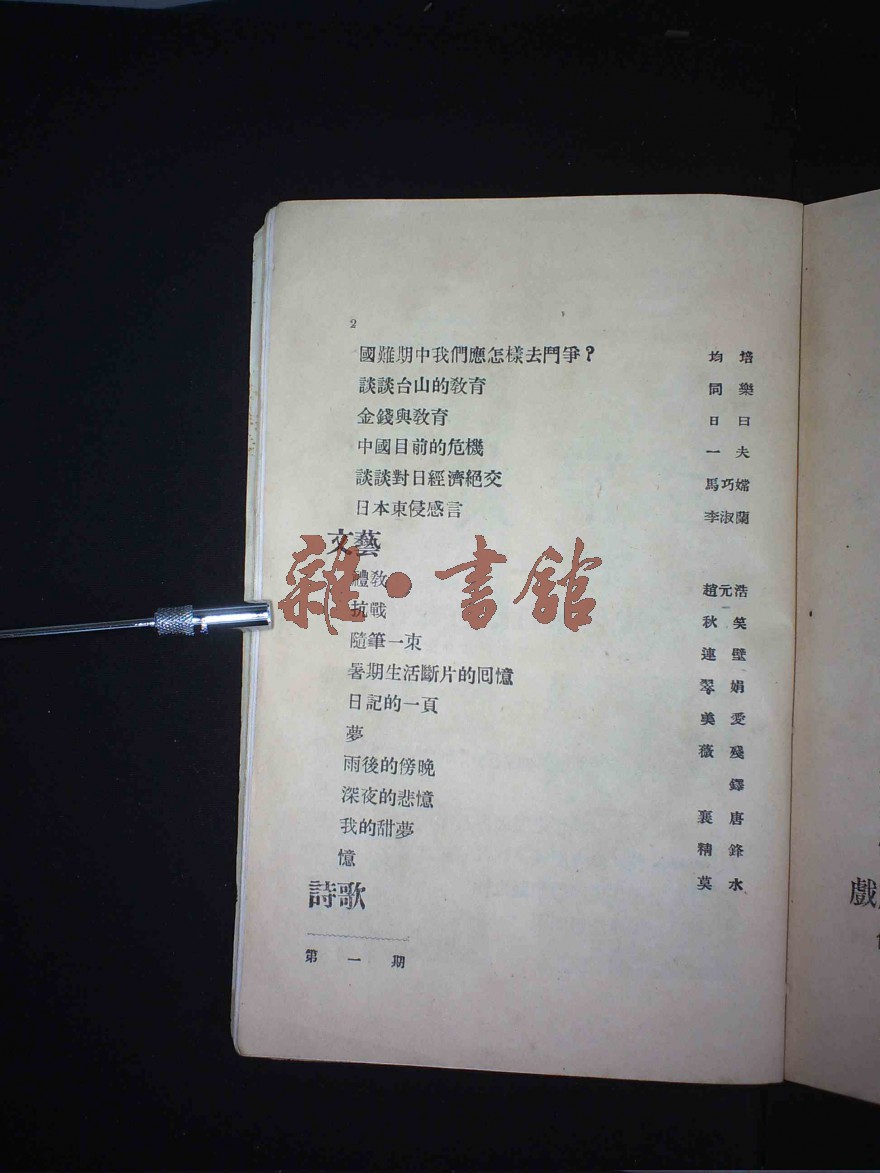 2
國難期中我們應怎樣去鬥爭？ 均培
談談台山的敎育 同樂
金錢與敎育 日曰
中國目前的危機 一夫
談談對日經濟絕交 馬巧嫦
日本東侵感言 李淑蘭
文藝
禮敎 趙元浩
抗戰 秋笑
隨筆一束 連壁
暑期生活斷片的囘憶 翠娟
日記的一頁 美愛
夢 薇殘
雨後的傍晚 鐸
深夜的悲憶 襄唐
我的甜夢 精鋒
憶 莫水
詩歌
第一期
雜·書館
戲